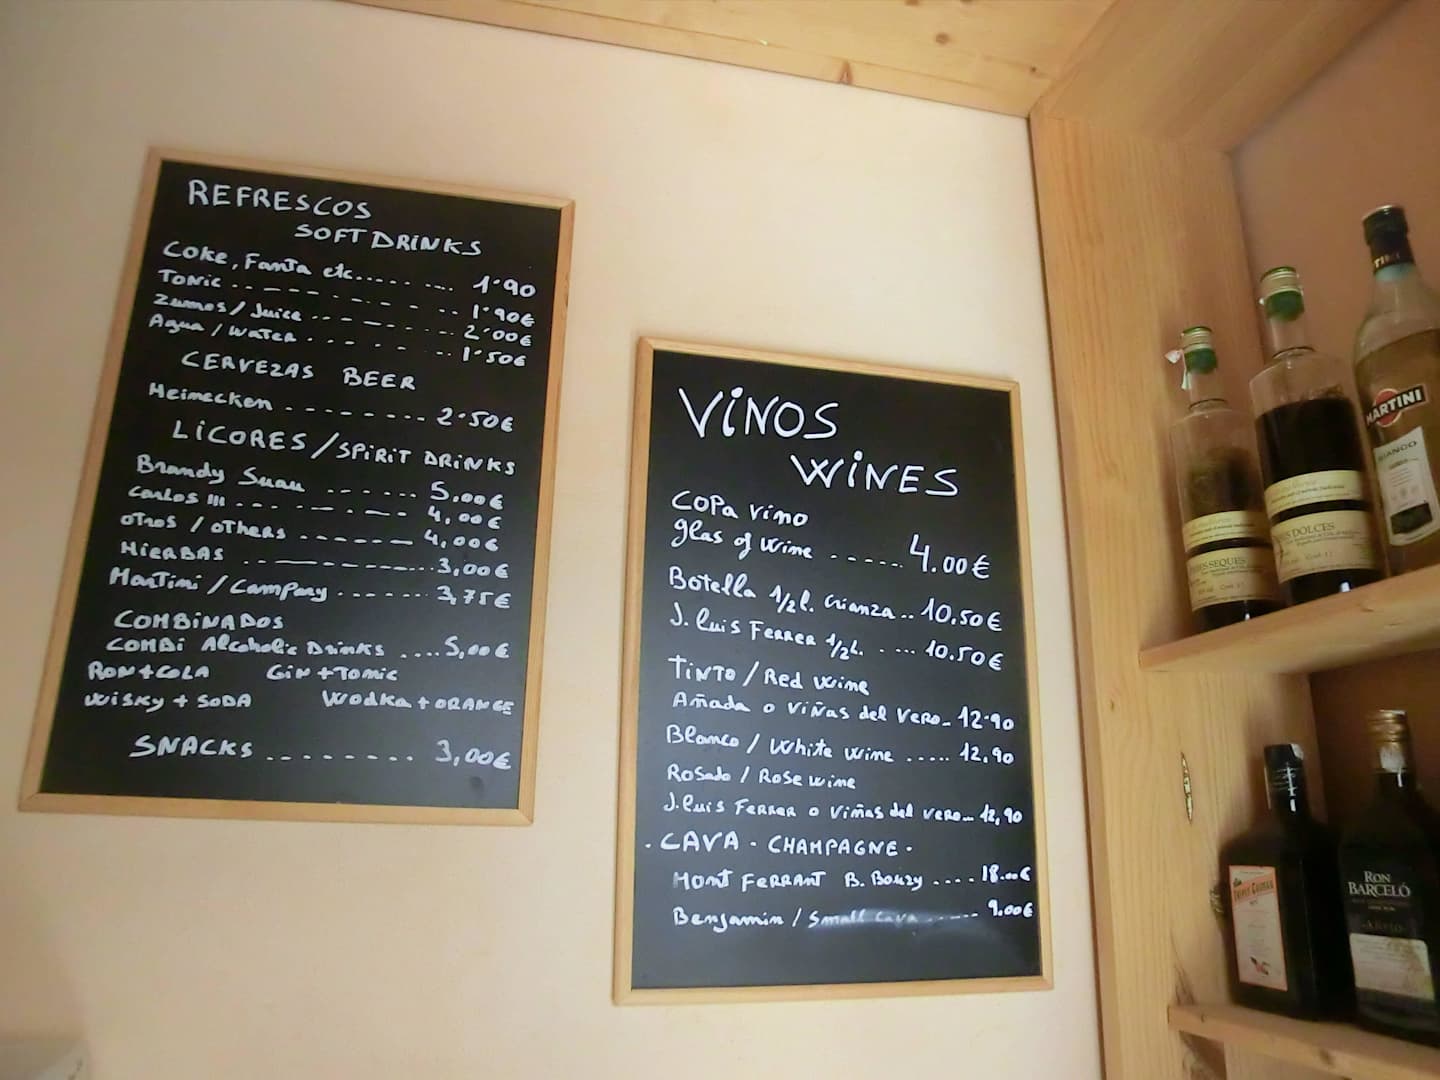 REFRESCOS
SOFT DRINKS
Coke, Fanta etc........ 1'90
Tonic ............ 1'90€
Zumos / Juice ........ 2'00€
Agua / Water ........ 1'50€
CERVEZAS BEER
Heinecken ........ 2'50€
LICORES / SPIRIT DRINKS
Brandy Suau ...... 5,00€
Carlos III ........ 4,00€
otros / others ....... 4,00€
HierBAS ............ 3,00€
Martini / Campary ...... 3,75€
COMBINADOS
COMBi Alcoholic Drinks .... 5,00€
RON + COLA Gin + Tonic
Wisky + SODA Wodka + ORANGE
SNACKS ........ 3,00€
VINOS
WINES
COPA Vino
glas of Wine ..... 4.00€
Botella 1/2 l. crianza .. 10.50€
J. Luis Ferrer 1/2 l. .... 10.50€
TINTO / Red wine
Añada o Viñas del Vero.. 12'90
Blanco / White wine ..... 12,90
Rosado / Rose wine
J. Luis Ferrer o Viñas del Vero.. 12,90
. CAVA - CHAMPAGNE .
Mont FERRANT B. .... 18.00€
Benjamin / Small Cava ..... 9.00€
MARTINI
BIANCO
DOLCES
SEQUES
RON
BARCELÓ
AÑEJO